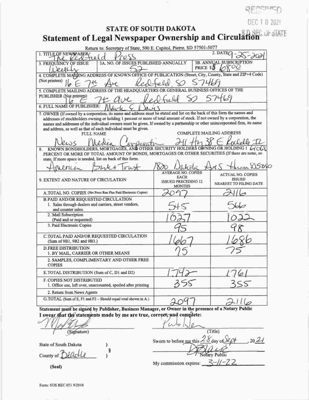 RECEIVED
DEC 10 2021
S.D. SEC. OF STATE
STATE OF SOUTH DAKOTA
Statement of Legal Newspaper Ownership and Circulation
Return to: Secretary of State, 500 E. Capitol, Pierre, SD 57501-5077
1. TITLE OF NEWSPAPER
The Redfield Press
2. DATE
9-25-2021
3. FREQUENCY OF ISSUE
Weekly
3A. NO. OF ISSUES PUBLISHED ANNUALLY
52
3B. ANNUAL SUBSCRIPTION PRICE $
4. COMPLETE MAILING ADDRESS OF KNOWN OFFICE OF PUBLICATION (Street, City, County, State and ZIP+4 Code) (Not printers)
16 E 7th Ave Redfield SD 57469
5. COMPLETE MAILING ADDRESS OF THE HEADQUARTERS OR GENERAL BUSINESS OFFICES OF THE PUBLISHER (Not printer)
16 E 7th Ave Redfield SD 57469
6. FULL NAME OF PUBLISHER:
Mark S Davis
7. OWNER (If owned by a corporation, its name and address must be stated and list on the back of this form the names and addresses of stockholders owning or holding 1 percent or more of total amount of stock. If not owned by a corporation, the names and addresses of the individual owners must be given. If owned by a partnership or other unincorporated firm, its name and address, as well as that of each individual must be given.
FULL NAME
COMPLETE MAILING ADDRESS
News Media Corporation
8. KNOWN BONDHOLDERS, MORTGAGEES, AND OTHER SECURITY HOLDERS OWNING OR HOLDING 1 PERCENT OR MORE OF TOTAL AMOUNT OF BONDS, MORTGAGES OR OTHER SECURITIES (If there are none, so state. If more space is needed, list on back of this form.
American Bank & Trust
9. EXTENT AND NATURE OF CIRCULATION
AVERAGE NO. COPIES EACH ISSUED PRECEDING 12 MONTHS
ACTUAL NO. COPIES ISSUED NEAREST TO FILING DATE
A. TOTAL NO. COPIES (Net Press Run Plus Paid Electronic Copies)
2097
2116
B. PAID AND/OR REQUESTED CIRCULATION
1. Sales through dealers and carriers, street vendors, and counter sales.
545
566
2. Mail Subscription (Paid and or requested)
1027
1022
3. Paid Electronic Copies
95
98
C. TOTAL PAID AND/OR REQUESTED CIRCULATION (Sum of 9B1, 9B2 and 9B3.)
1667
1686
D. FREE DISTRIBUTION
1. BY MAIL, CARRIER OR OTHER MEANS
75
75
2. SAMPLES, COMPLIMENTARY AND OTHER FREE COPIES
E. TOTAL DISTRIBUTION (Sum of C, D1 and D2)
1742
1761
F. COPIES NOT DISTRIBUTED
1. Office use, left over, unaccounted, spoiled after printing
355
355
2. Return from News Agents
G. TOTAL (Sum of E, F1 and F2 - Should equal total shown in A)
2097
2116
Statement must be signed by Publisher, Business Manager, or Owner in the presence of a Notary Public
I swear that the statements made by me are true, correct, and complete:
(Signature)
(Title)
State of South Dakota )
Sworn to before me this 28 day of Sept, 2021
County of Beadle )
Notary Public
(Seal)
My commission expires: 3-11-22